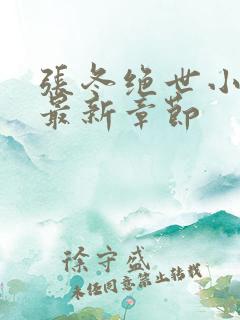 張冬绝世小
最新章節
徐守盛
未经同意禁止转载